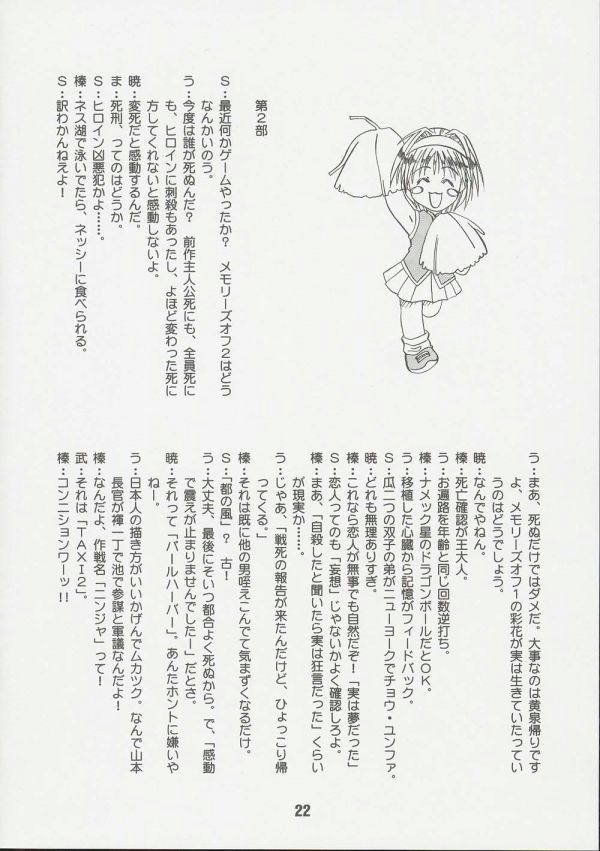 第2部
S：最近何かゲームやったか？　メモリーズオフ2はどう
なんかいのう。
う：今度は誰が死ぬんだ？　前作主人公死にも、全員死に
も、ヒロインに刺殺もあったし、よほど変わった死に
方してくれないと感動しないよ。
暁：変死だと感動するんだ。
ま：死刑、ってのはどうか。
S：ヒロイン凶悪犯かよ……。
榛：ネス湖で泳いでたら、ネッシーに食べられる。
S：訳わかんねえよ！
う：まあ、死ぬだけではダメだ。大事なのは黄泉帰りです
よ、メモリーズオフ1の彩花が実は生きていたってい
うのはどうでしょう。
暁：なんでやねん。
榛：死亡確認が王大人。
う：お遍路を年齢と同じ回数逆打ち。
榛：ナメック星のドラゴンボールだとOK。
う：移植した心臓から記憶がフィードバック。
S：瓜二つの双子の弟がニューヨークでチョウ・ユンファ。
暁：どれも無理ありすぎ。
榛：これなら恋人が無事でも自然だぞ！「実は夢だった」
S：恋人っての も「妄想」じゃないかよく確認しろよ。
榛：まあ、「自殺したと聞いたら実は狂言だった」くらい
が現実か……。
う：じゃあ、「戦死の報告が来たんだけど、ひょっこり帰
ってくる。」
榛：それは既に他の男咥えこんでて気まずくなるだけ。
S：「都の風」？　古！
う：大丈夫、最後にそいつ都合よく死ぬから。で、「感動
で震えが止まりませんでしたー」だとさ。
暁：それって「パールハーバー」。あんたホントに嫌いや
ねー。
う：日本人の描き方がいいかげんでムカツク。なんで山本
長官が褌一丁で池で参謀と軍議なんだよ！
榛：なんだよ、作戦名「ニンジャ」って！
武：それは「TAXi2」。
榛：コンニショワーッ!!
22